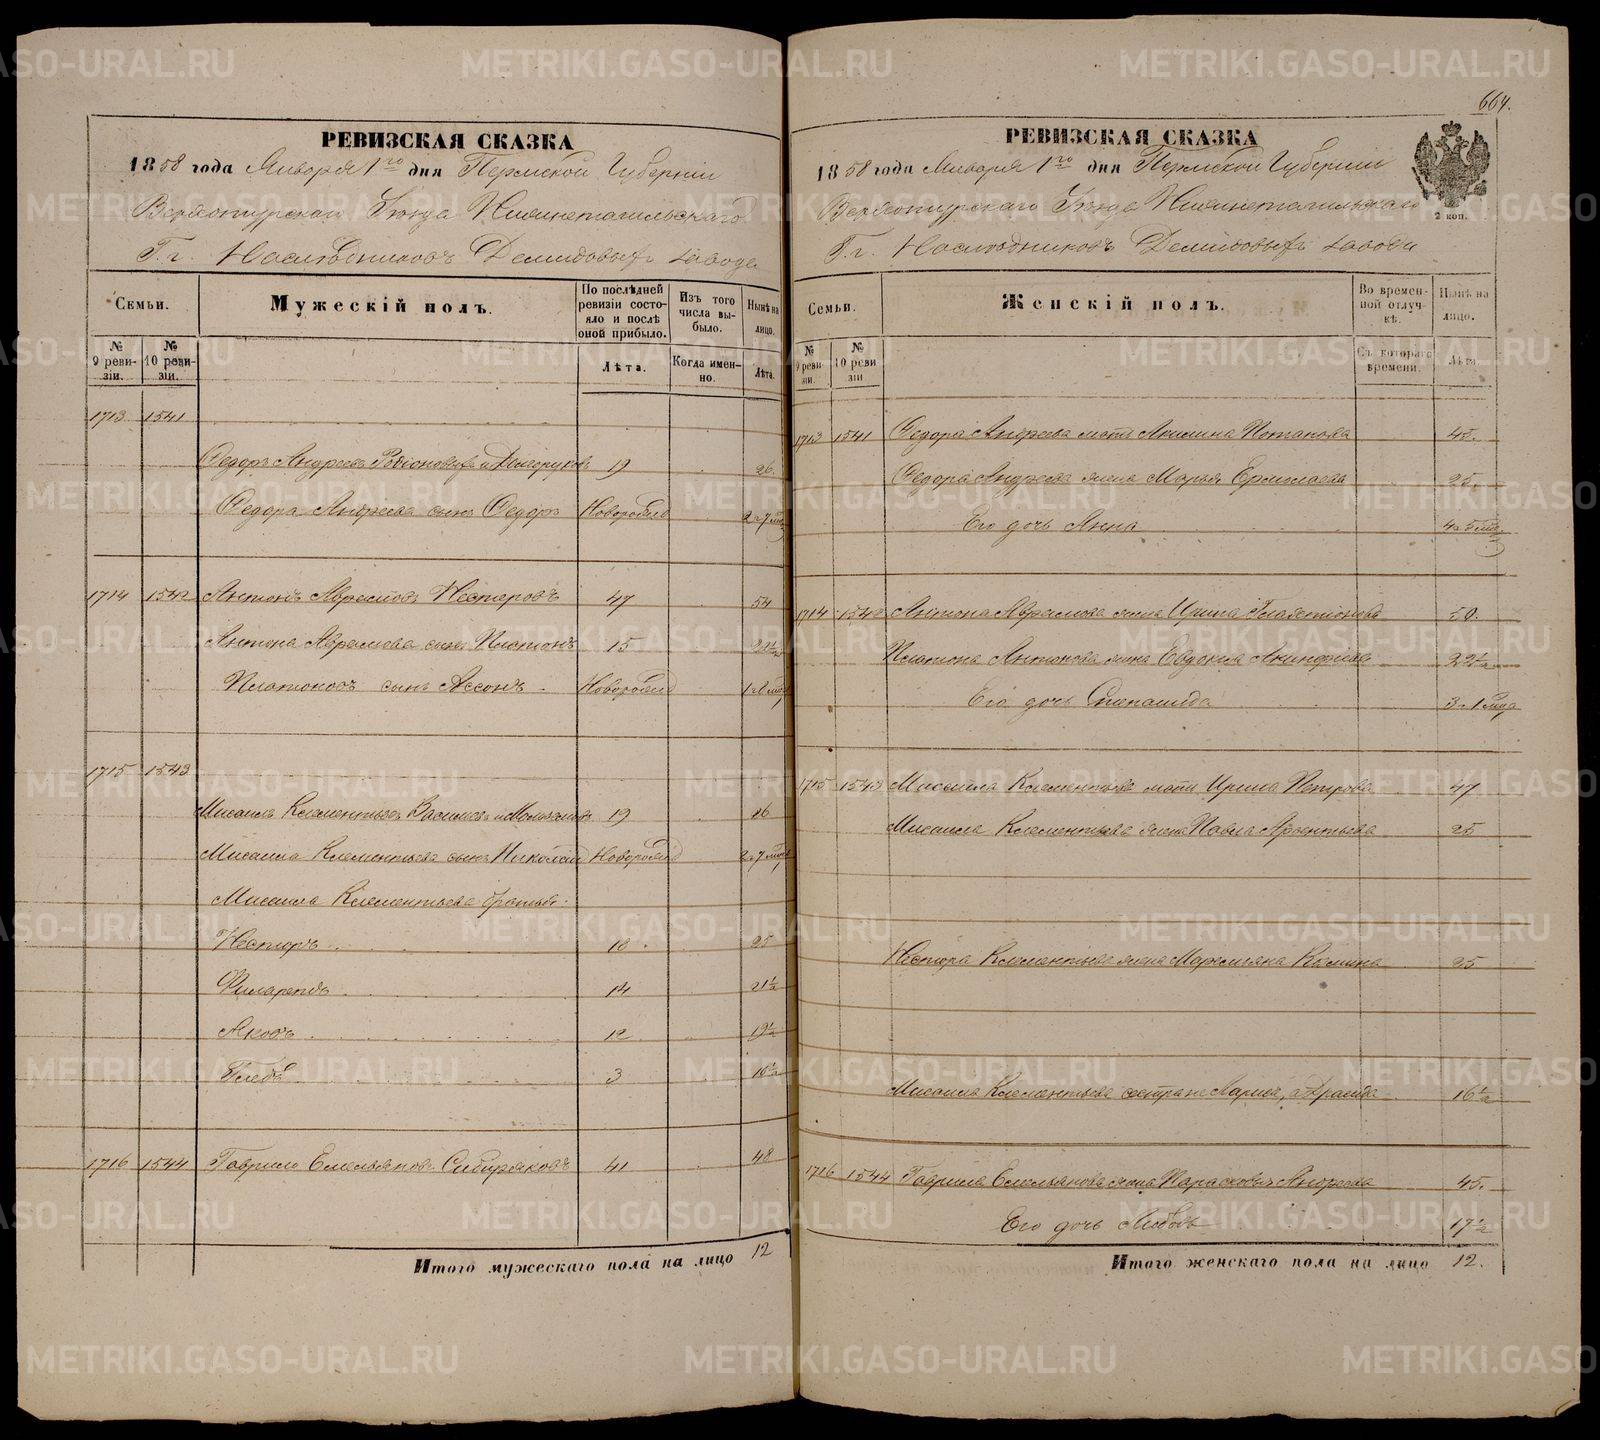 664.
РЕВИЗСКАЯ СКАЗКА
1858 года Января 1го дня Пермской Губернии
Верхотурскаго Уезда Нижнетагильскаго
Г.г. Наследниковъ Демидовыхъ завода
Семьи.
Мужескій полъ.
По послѣдней ревизіи состояло и послѣ оной прибыло.
Изъ того числа выбыло.
Нынѣ на лицо.
№ 9 ревизіи.
№ 10 ревизіи.
Лѣта.
Когда именно.
Лѣта.
1713 1541
Федоръ Андреевъ 19 26.
Федора Андреева сынъ Федоръ Новорожд
1714 1542 Антонъ Аврамовъ Нестеровъ 47 54
Антона Аврамова сынъ Платонъ 15
Платоновъ сынъ Новорожд
1715 1543
Мисаилъ Клементьевъ 19 26
Мисаила Клементьева сынъ Николай Новорожд
Мисаила Клементьева братья:
Несторъ 18 25
Филаретъ 14 21½
Яковъ 12 19½
Глебъ 3 10½
1716 1544 Гаврило Емельяновъ Сибиряковъ 41 48
Итого мужескаго пола на лицо 12
РЕВИЗСКАЯ СКАЗКА
1858 года Января 1го дня Пермской Губерніи
Верхотурскаго Уезда Нижнетагильскаго
Г.г. Наследниковъ Демидовыхъ завода
2 коп.
Семьи.
Женскій полъ.
Во временной отлучкѣ.
Нынѣ на лицо.
№ 9 ревизіи.
№ 10 ревизіи
Съ котораго времени.
Лѣта.
1713 1541 Федора Андреева мать Акилина Потапова 45.
Федора Андреева жена Марья Ермилаева 25.
Его дочь Анна
1714 1542 Антона Аврамова жена Ирина 50.
Платона Антонова жена Евдокия 22½
Его дочь Степанида
1715 1543 Мисаила Клементьева мать Ирина Петрова 47
Мисаила Клементьева жена Павла 25
Нестора Клементьева жена 25
Мисаила Клементьева сестра 16½
1716 1544 Гаврила Емельянова жена Парасковья Андреева 45.
Его дочь Любовь 17½
Итого женскаго пола на лицо 12.
METRIKI.GASO-URAL.RU